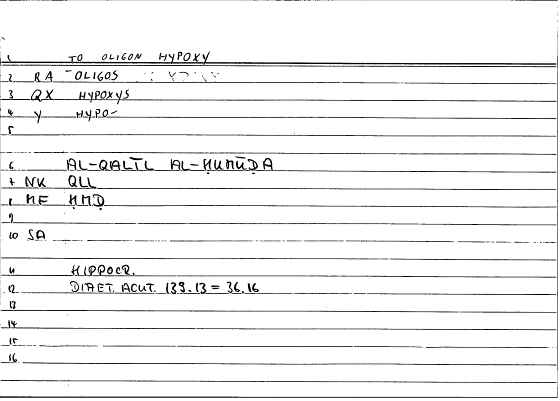 1 TO OLIGON HYPOXY
2 RA OLIGOS
3 QX HYPOXYS
4 Y HYPO-
5
6 AL-QALĪL AL-ḤUMŪḌA
7 NK QLL
8 ME ḤMḌ
9
10 SA
11 HIPPOCR.
12 DIAET. ACUT. 139.13 = 36.16
13
14
15
16